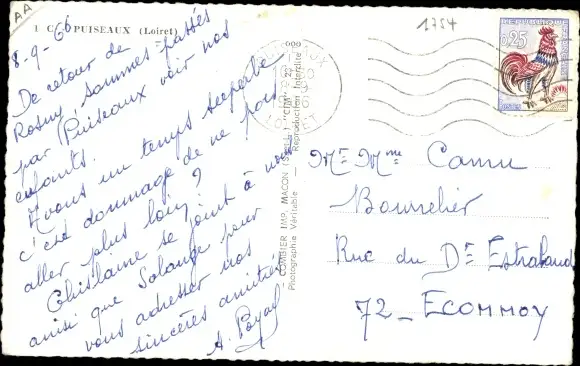 AA
1 C PUISEAUX (Loiret)
8-9-66
De retour de
Rosny, sommes passés
par Puiseaux voir nos
enfants.
Avons un temps superbe
c'est dommage de ne pas
aller plus loin ?
Ghislaine se joint à nous
ainsi que Solange pour
vous adresser nos
sincères amitiés
COMBIER IMP. MACON
Photographie Véritable - Reproduction Interdite
1754
REPUBLIQUE
0,25
Mr Mme Camu
Bourrelier
Rue du Dr Estrabaud
72 - ECOMMOY